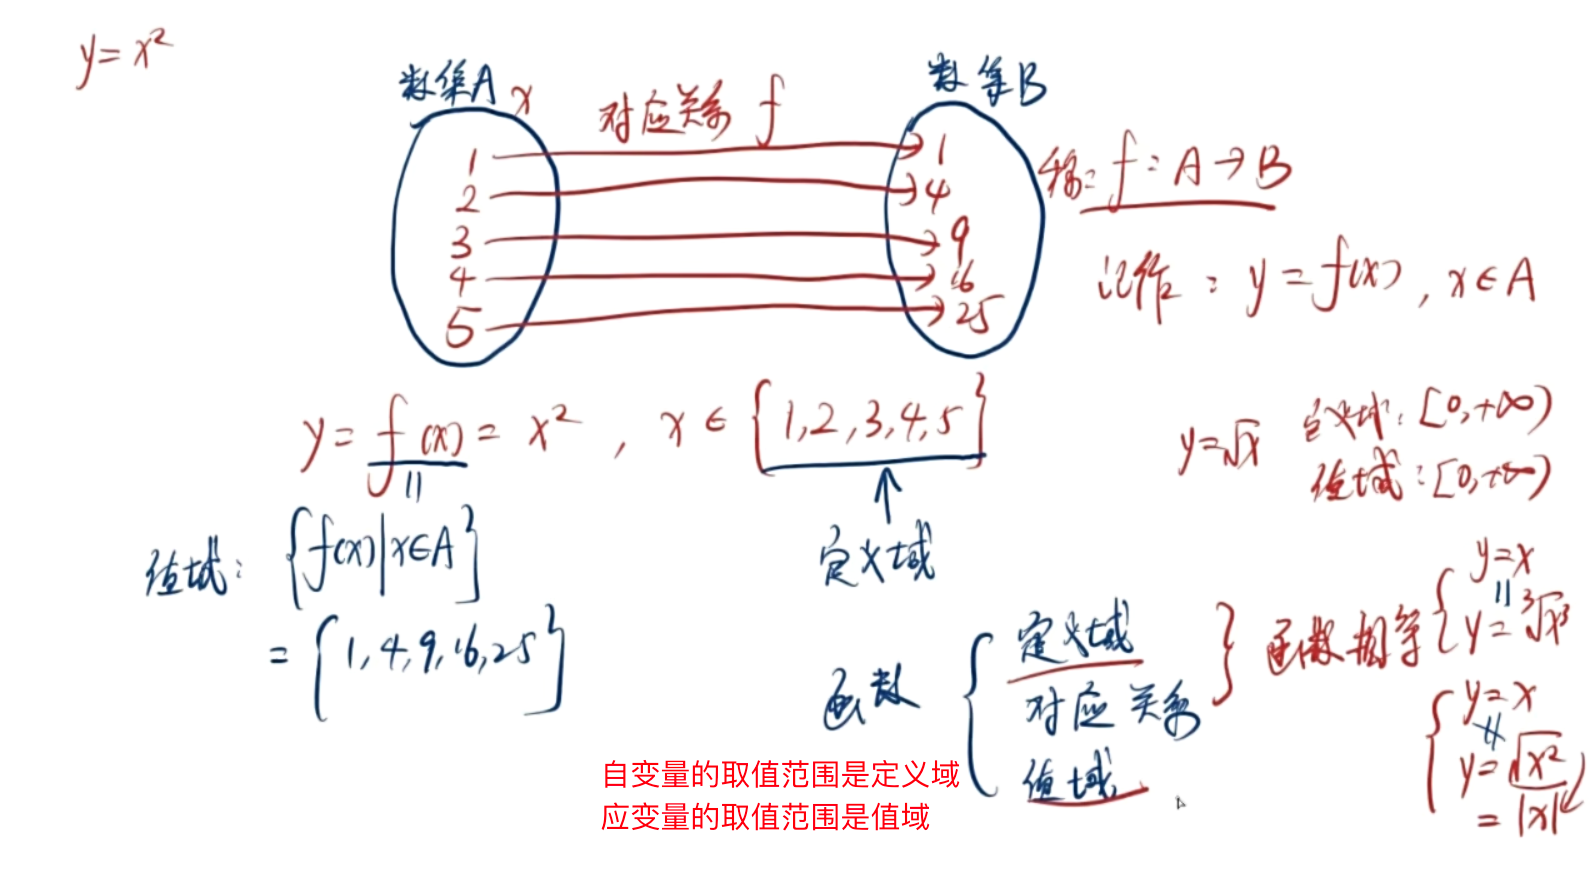 y = x²
数集A x 对应关系 f 数集B
1 → 1
2 → 4
3 → 9
4 → 16
5 → 25
称: f: A → B
记作: y = f(x), x ∈ A
y = f(x) = x², x ∈ {1,2,3,4,5}
定义域
值域: {f(x)|x∈A}
= {1,4,9,16,25}
y=√x 定义域: [0,+∞)
值域: [0,+∞)
函数 { 定义域
对应关系
值域
} 函数相等
{ y=x
=
y=³√x³
{ y=x
≠
y=√x²
=|x|
自变量的取值范围是定义域
应变量的取值范围是值域